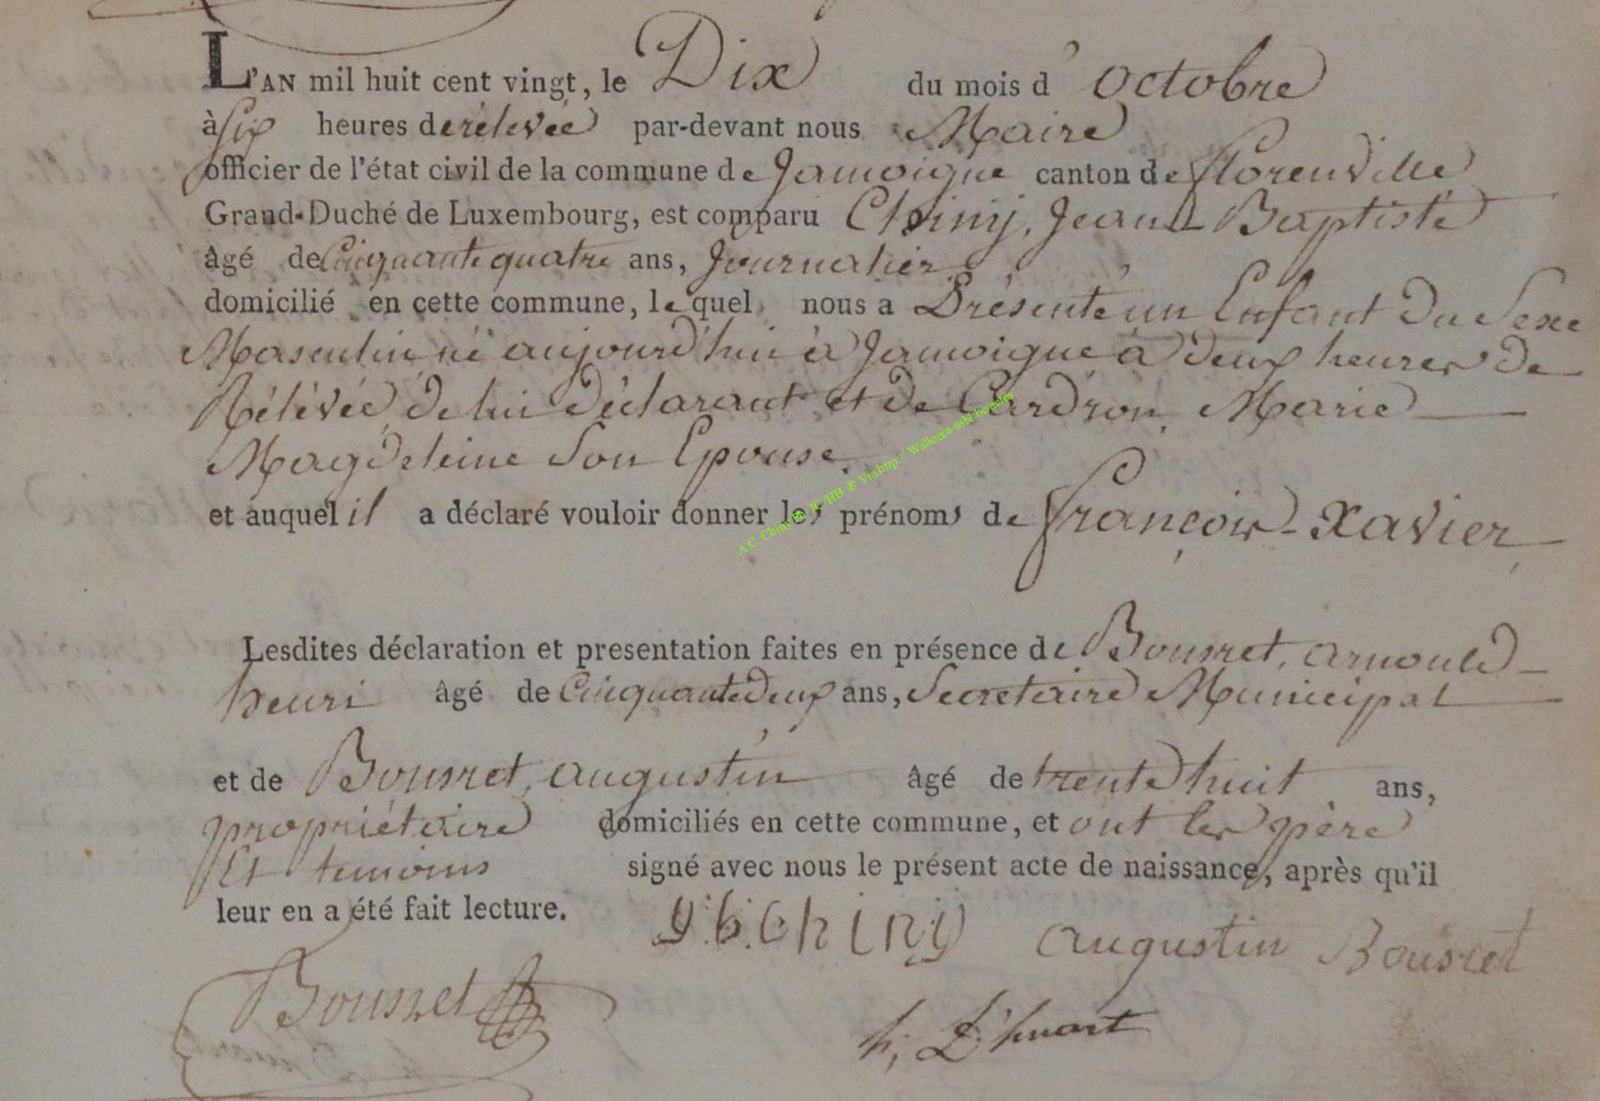 L'AN mil huit cent vingt, le Dix du mois d'Octobre
à Six heures de rélevée par-devant nous Maire
officier de l'état civil de la commune de Jamoigne canton de florenville
Grand-Duché de Luxembourg, est comparu Chiny, Jean Baptiste
âgé de Cinquante quatre ans, Journalier
domicilié en cette commune, lequel nous a Présenté un Enfant du Sexe
Masculin, né aujourd'hui à Jamoigne à deux heures de
Rélévée, de lui déclarant et de Cardron, Marie
Magdeleine Son Epouse.
et auquel il a déclaré vouloir donner les prénoms de françois-Xavier,
Lesdites déclaration et presentation faites en présence de Bousret, arnould
henri âgé de Cinquante deux ans, Secretaire Municipal
et de Bousret, augustin âgé de trente huit ans,
propriétaire domiciliés en cette commune, et ont les père
Et temoins signé avec nous le présent acte de naissance, après qu'il
leur en a été fait lecture.
J.b. Chiny augustin Bousret
Bousret
h; D'huart